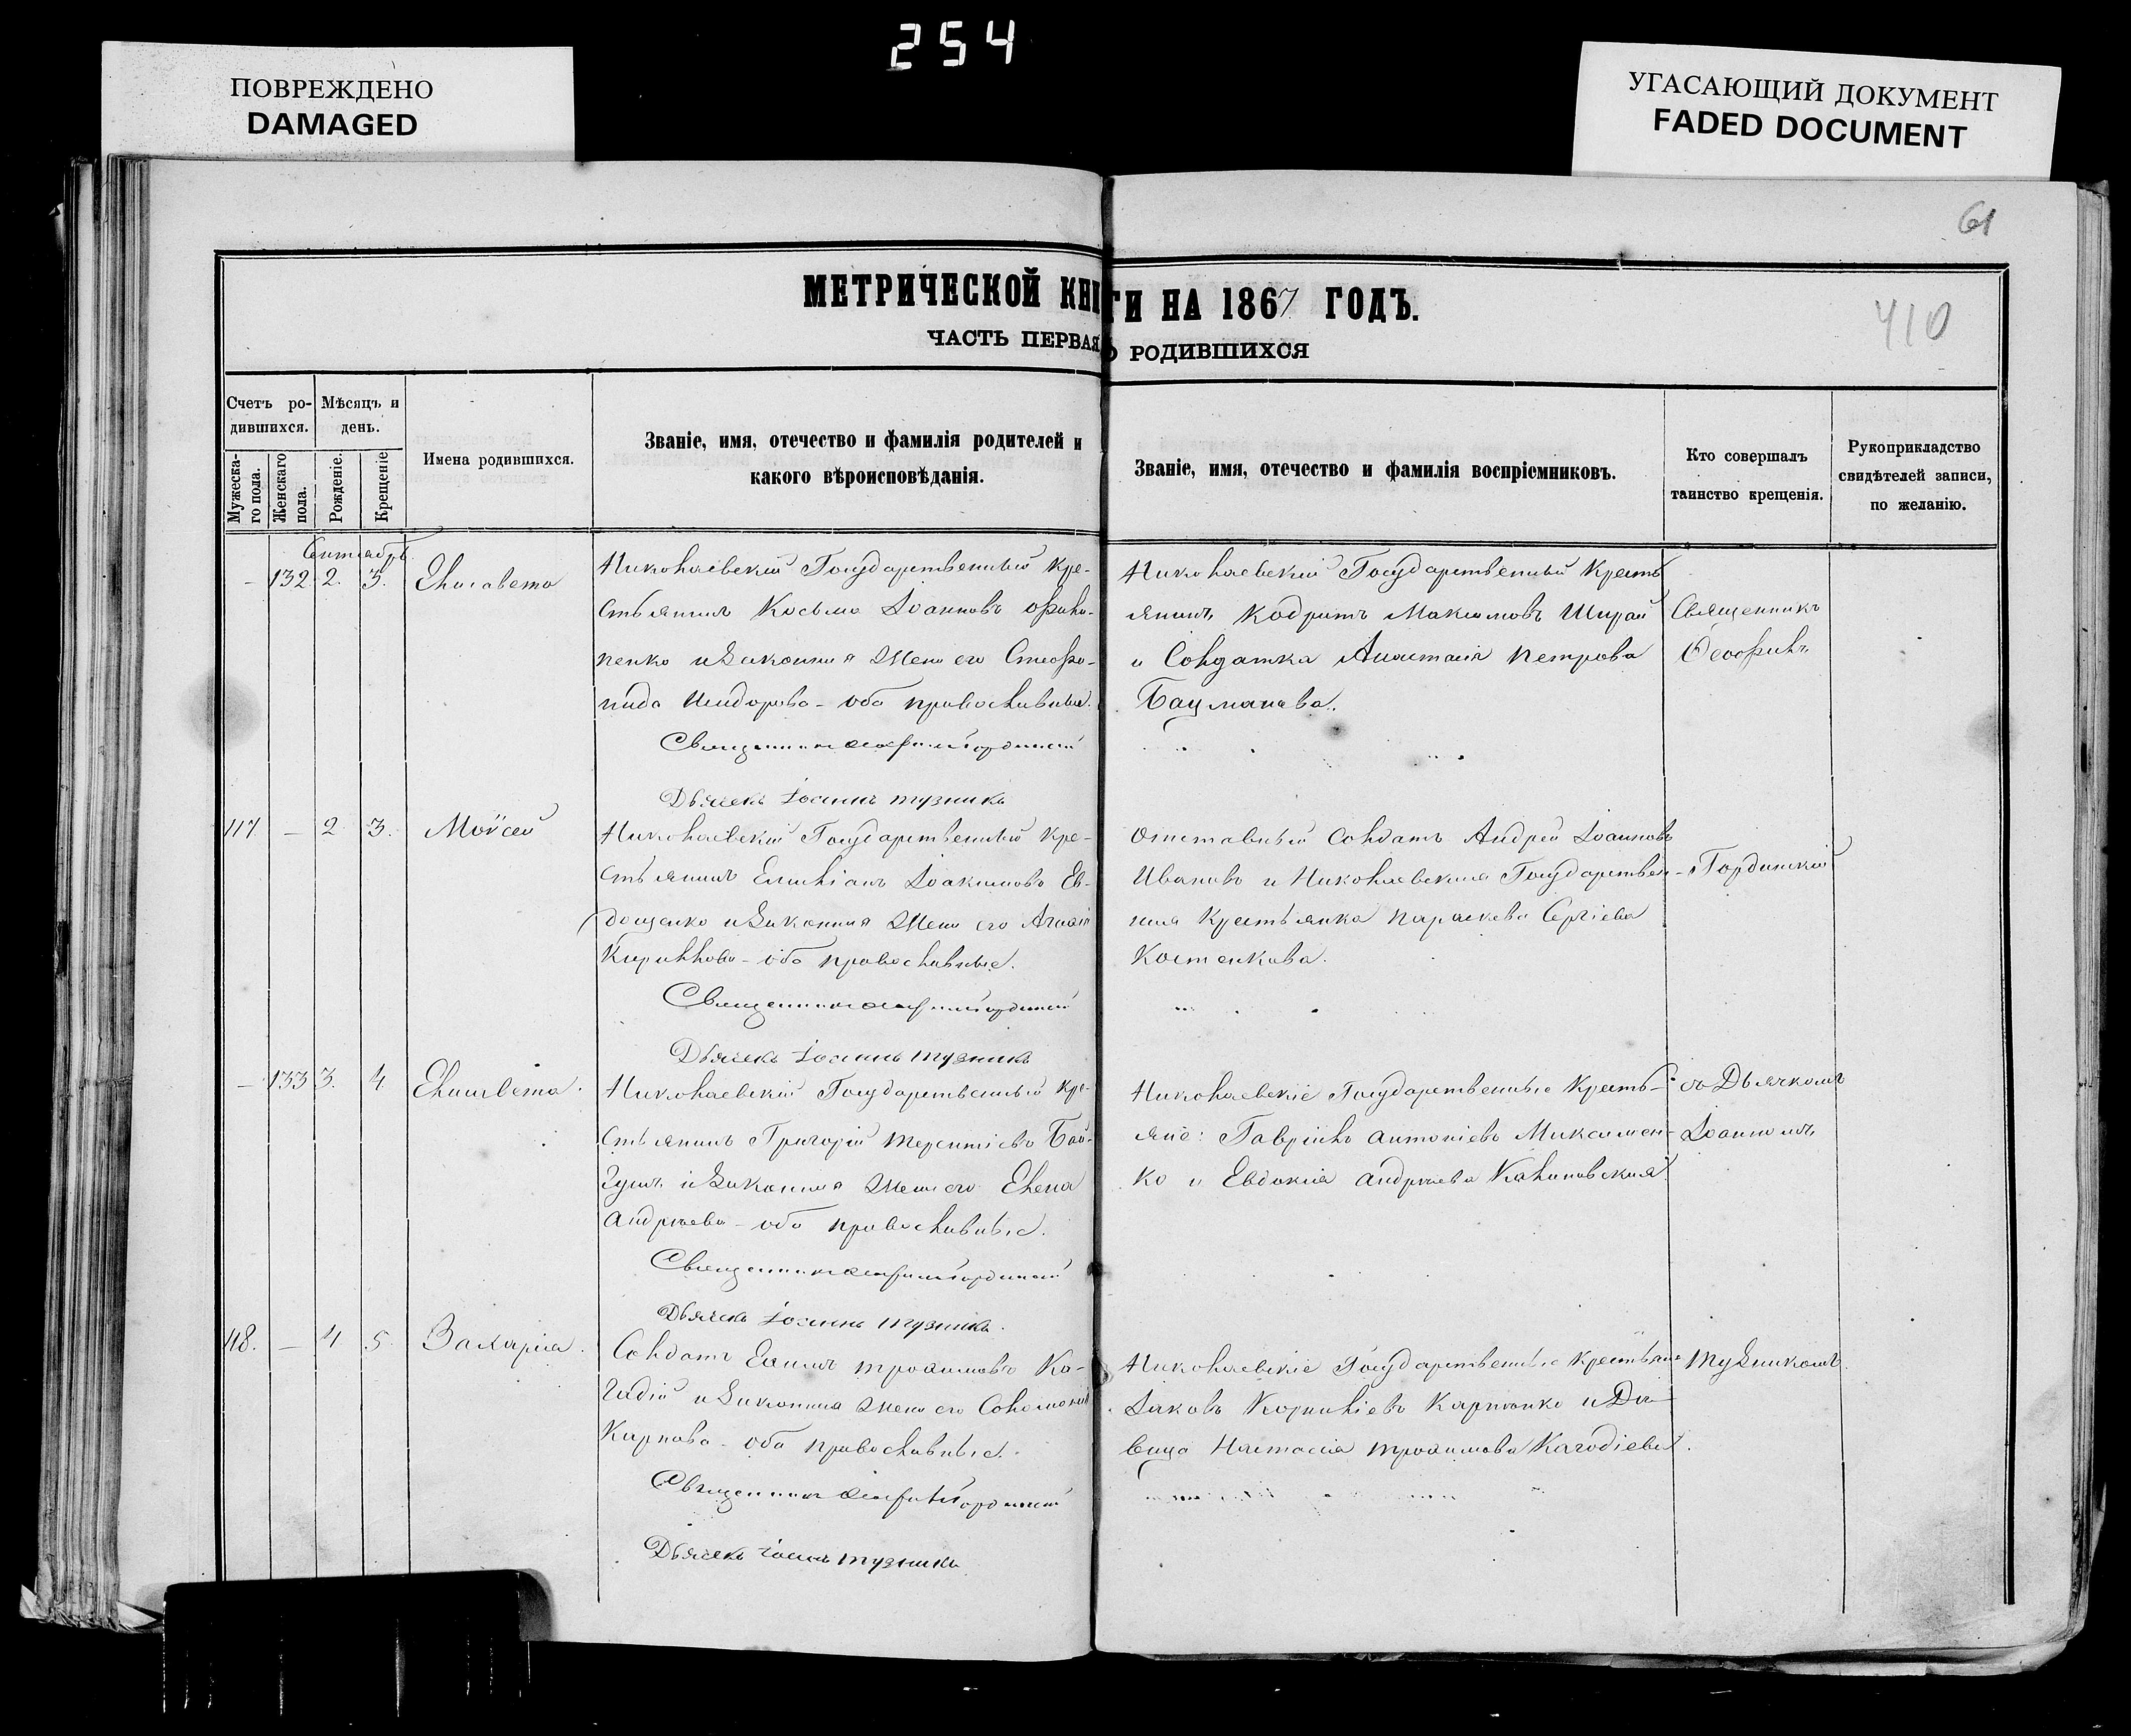 254
ПОВРЕЖДЕНО
DAMAGED
УГАСАЮЩИЙ ДОКУМЕНТ
FADED DOCUMENT
61
МЕТРИЧЕСКОЙ КНИГИ НА 1867 ГОДЪ.
410
ЧАСТЬ ПЕРВАЯ О РОДИВШИХСЯ
Счетъ ро-
дившихся.
Мѣсяцъ и
день.
Мужеска-
го пола.
Женскаго
пола.
Рожденіе.
Крещеніе
Имена родившихся.
Званіе, имя, отечество и фамилія родителей и
какого вѣроисповѣданія.
Званіе, имя, отечество и фамилія воспріемниковъ.
Кто совершалъ
таинство крещенія.
Рукоприкладство
свидѣтелей записи,
по желанію.
Сентябрь
– 132 2. 3. Елисавета
Николаевскій Государственный Кре-
стьянинъ Косьма Іоанновъ
пенко и Законная Жена его Стефа-
нида Исидорова – оба православные.
Священникъ Ѳеофилъ Гординскій
Дьячекъ Іоаннъ Тузникъ
Николаевскій Государственный Кресть
янинъ Кодратъ Максимовъ Шрай
и Солдатка Анастасія Петрова
Бацманова.
Священникъ
Ѳеофилъ
117. – 2 3. Моѵсей
Николаевскій Государственный Кре-
стьянинъ Емиліанъ Іоакимовъ Ев-
дощенко и Законная Жена его Агаѳія
Кириллова – оба православные.
Священникъ Ѳеофилъ Гординскій
Дьячекъ Іоаннъ Тузникъ
Отставный Солдатъ Андрей Іоанновъ
Ивановъ и Николаевская Государствен-
ная Крестьянка Параскева Сергіева
Костенкова.
Гординскій
– 133 3. 4 Елисавета.
Николаевскій Государственный Кре-
стьянинъ Григорій Терентіевъ Бай-
и Законная Жена его Елена
Андреева – оба православные.
Священникъ Ѳеофилъ Гординскій
Дьячекъ Іоаннъ Тузникъ.
Николаевскіе Государственные Кресть-
яне: Гавріилъ Антоніевъ Максимен-
ко и Евдокія Андреева Калиновская.
съ Дьячкомъ
Іоанномъ
118. – 4 5. Захарія.
Солдатъ Трофимовъ Ка-
и Законная Жена его Соломонія
Карпова – оба православные.
Священникъ Ѳеофилъ Гординскій
Дьячекъ Іоаннъ Тузникъ
Николаевскіе Государственные Крестьяне
Іаковъ Корниліевъ Карпенко и Дѣ-
вица Настасія Трофимова
Тузникомъ.